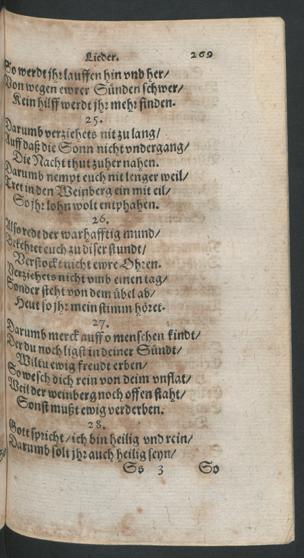 Lieder. 269
So werdt jhr lauffen hin vnd her/
Von wegen ewrer Sünden schwer/
Kein hilff werdt jhr mehr finden.
25.
Darumb verziehets nit zu lang/
Auff daß die Sonn nicht vndergang/
Die Nacht thut zuher nahen.
Darumb nempt euch nit lenger weil/
Tret in den Weinberg ein mit eil/
So jhr lohn wolt entpfahen.
26.
Also redt der warhafftig mund/
Bekehret euch zu diser stundt/
Verstockt nicht ewre Ohren.
Verziehets nicht vmb einen tag/
Sonder steht von dem übel ab/
Heut so jhr mein stimm höret.
27.
Darumb merck auff o menschen kindt/
Der du noch ligst in deiner Sündt/
Wiltu ewig freudt erben/
So wesch dich rein von deim vnflat/
Weil der weinberg noch offen staht/
Sonst mußt ewig verderben.
28.
Gott spricht/ ich bin heilig vnd rein/
Darumb solt jhr auch heilig seyn/
Ss 3 So